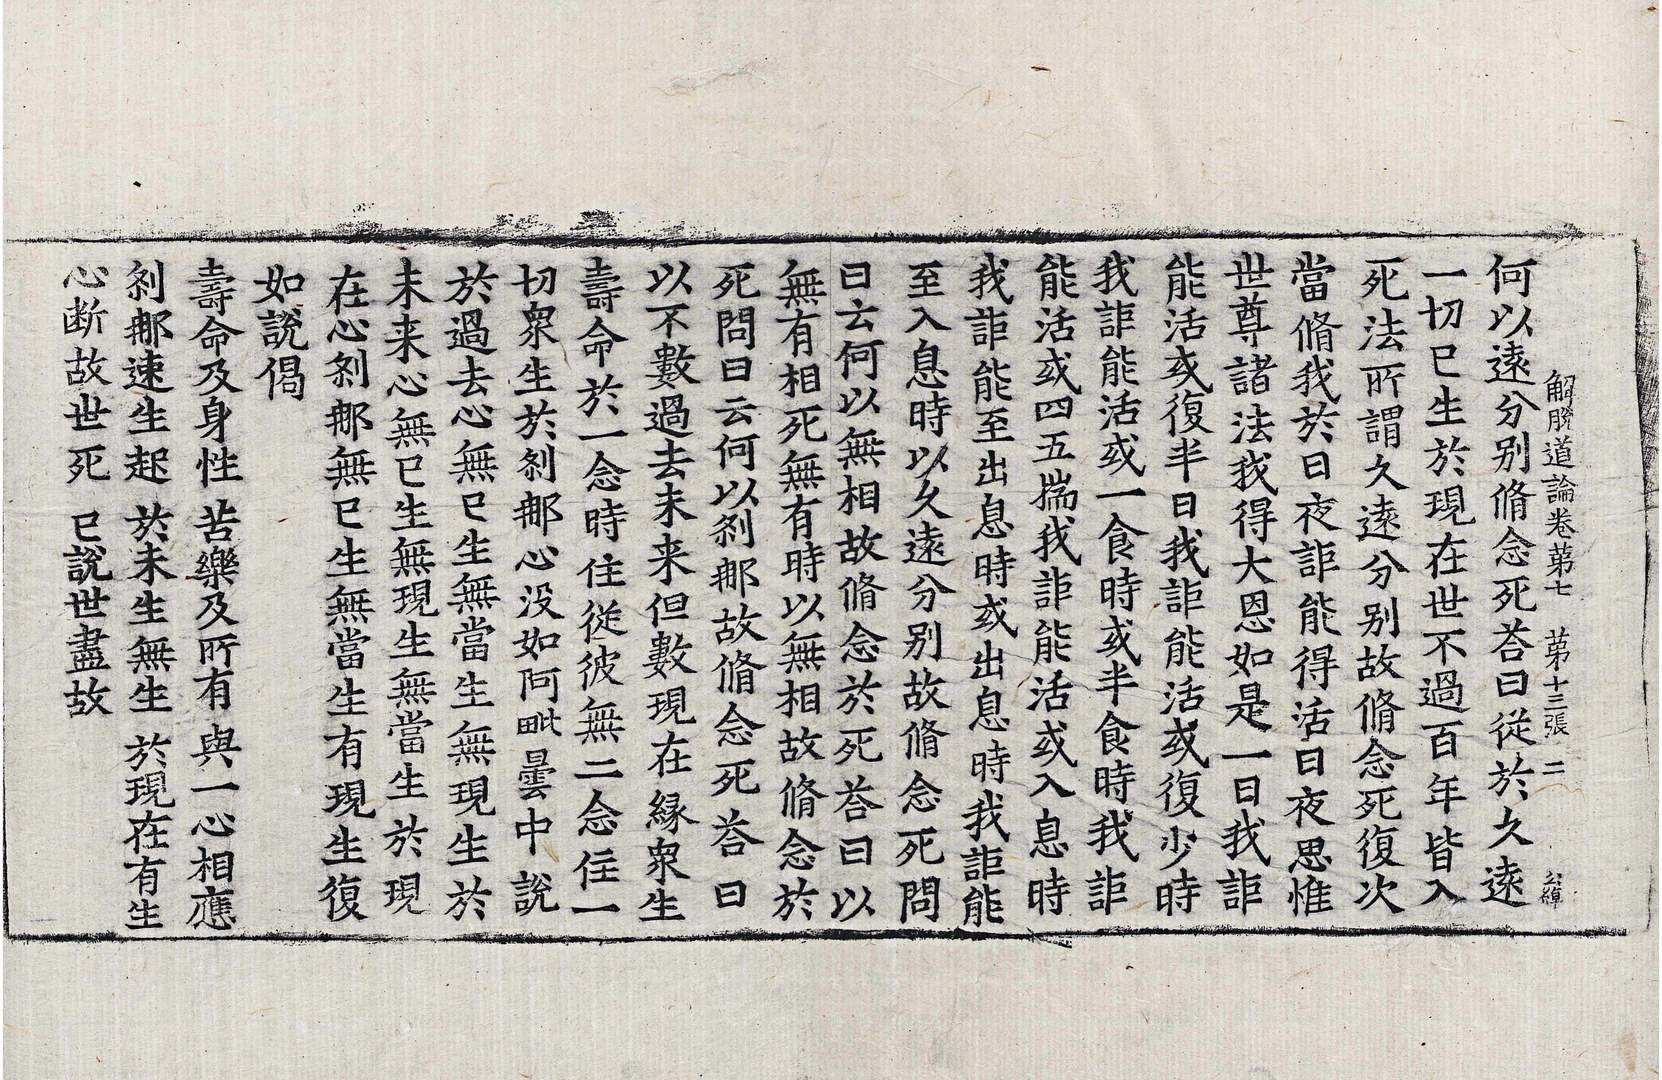 解脫道論卷苐七 苐十三張 二
何以遠分別脩念死荅曰從於久遠
一切已生於現在世不過百年皆入
死法所謂久遠分別故脩念死復次
當脩我於日夜詎能得活日夜思惟
世尊諸法我得大恩如是一日我詎
能活或復半日我詎能活或復少時
我詎能活或一食時或半食時我詎
能活或四五揣我詎能活或入息時
我詎能至出息時或出息時我詎能
至入息時以久遠分別故脩念死問
曰云何以無相故脩念於死荅曰以
無有相死無有時以無相故脩念於
死問曰云何以剎那故脩念死荅曰
以不數過去未来但數現在緣衆生
壽命於一念時住從彼無二念住一
切衆生於剎那心没如阿毗曇中說
於過去心無已生無當生無現生於
未来心無已生無現生無當生於現
在心剎那無已生無當生有現生復
如說偈
壽命及身性 苦樂及所有 與一心相應
剎那速生起 於未生無生 於現在有生
心断故世死 已說世盡故